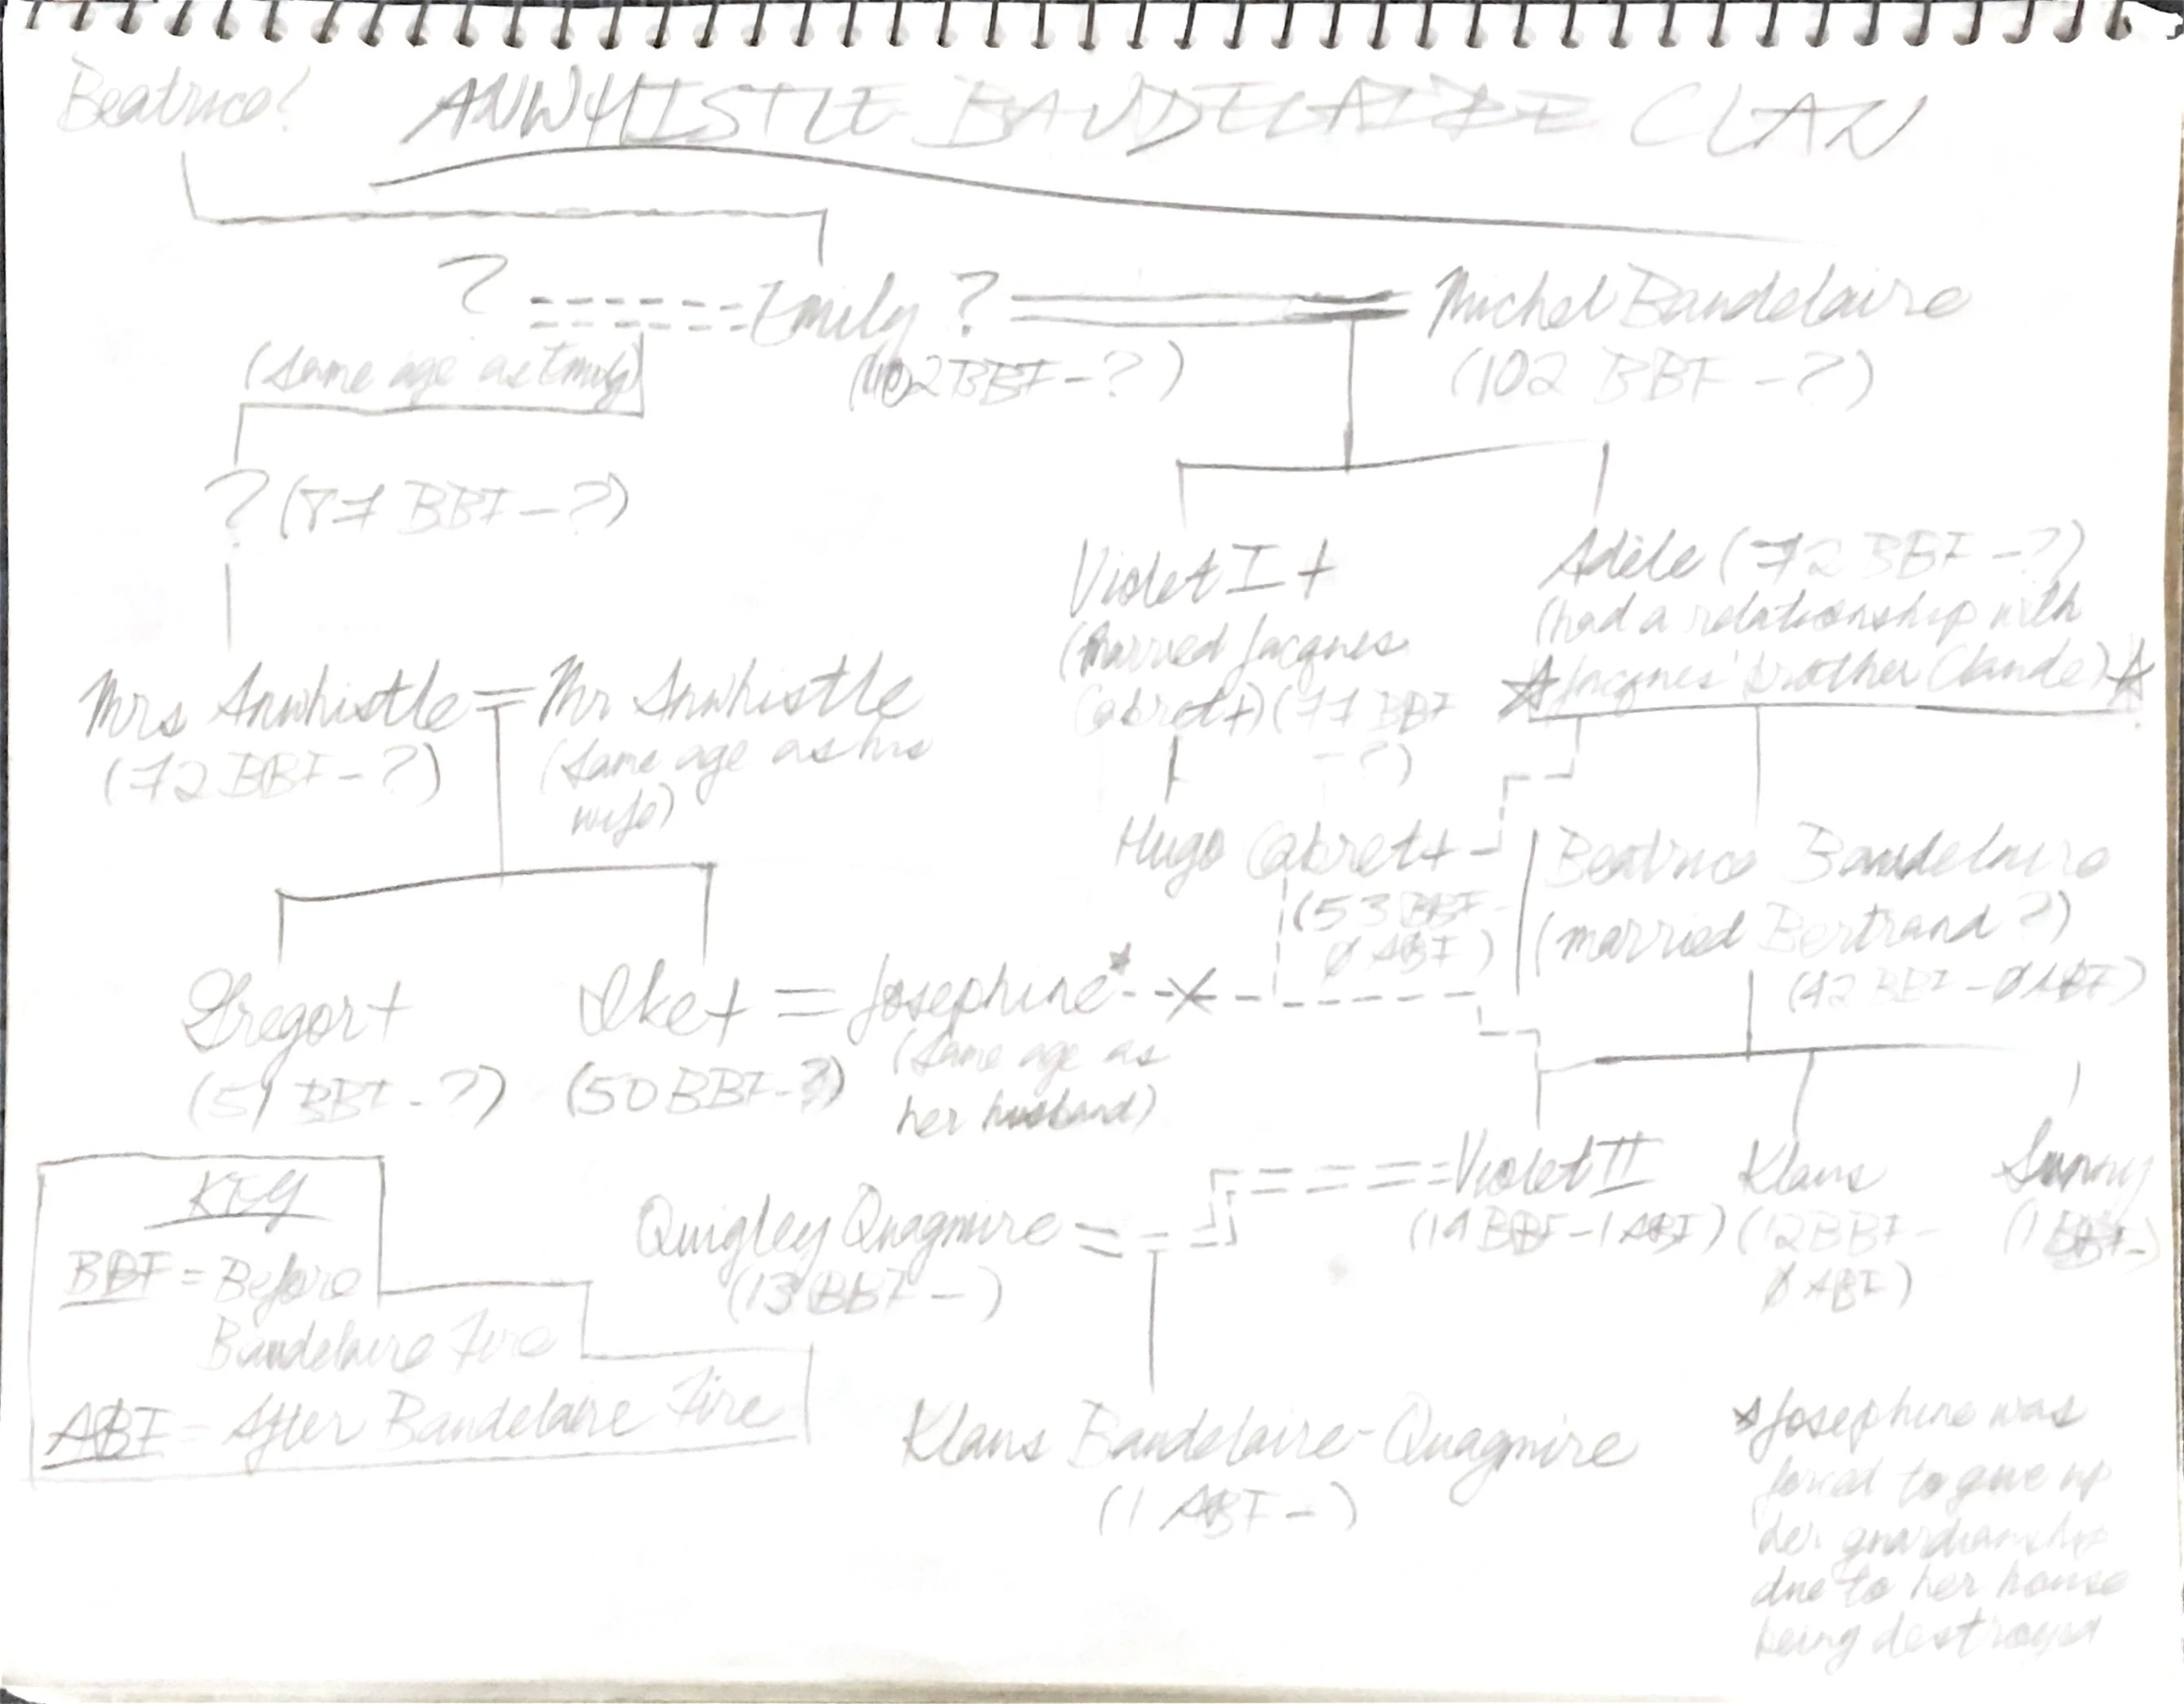 Beatrice?
ANWHISTLE BAUDELAIRE CLAN
? Emily ? Michel Baudelaire
(same age as Emily) (102 BBF - ?) (102 BBF - ?)
? (77 BBF - ?)
Violet I + Adèle (72 BBF - ?)
(married Jacques (had a relationship with
Cabret+) (77 BBF Jacques' brother Claude)
- ?)
Mrs Anwhistle = Mr Anwhistle
(72 BBF - ?) (same age as his
wife)
Hugo Cabret+ Beatrice Baudelaire
(53 BBF - (married Bertrand ?)
0 ABF) (42 BBF - 0 ABF)
Gregor+ Ike+ = Josephine*
(51 BBF - ?) (50 BBF - ?) (same age as
her husband)
Quigley Quagmire = Violet II Klaus Sunny
(13 BBF - ) (14 BBF - 1 ABF) (12 BBF - (1 BBF -)
0 ABF)
KEY
BBF = Before
Baudelaire Fire
ABF = After Baudelaire Fire
Klaus Baudelaire-Quagmire
(1 ABF - )
*Josephine was
forced to give up
her guardianship
due to her house
being destroyed